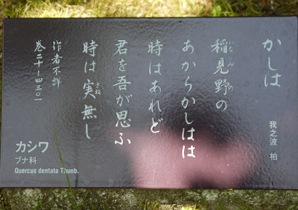 かしは
我之波 柏
稲見野の
あからがしはは
時はあれど
君を吾が思ふ
時は実無し
作者不詳
巻二十―四三〇一
カシワ
ブナ科
Quercus dentata Thunb.